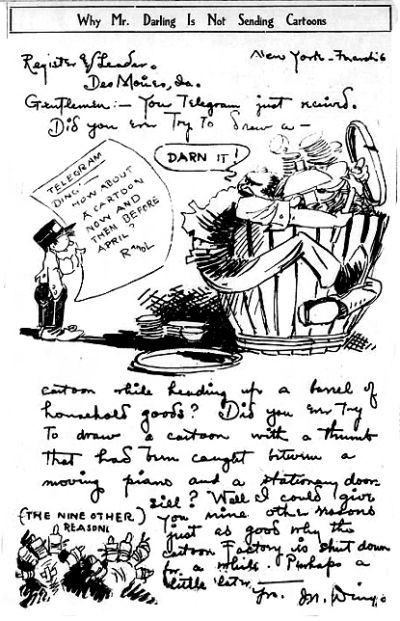 Why Mr. Darling Is Not Sending Cartoons
New York - March 6
Register & Leader.
Des Moines, Ia.
Gentlemen:- Your Telegram just received.
Did you ever Try To draw a -
DARN IT!
TELEGRAM
DING.
HOW ABOUT
A CARTOON
NOW AND
THEN BEFORE
APRIL?
R & L
cartoon while heading up a barrel of
household goods? Did you ever try
To draw a cartoon with a thumb
that had been caught between a
moving piano and a stationary door-
sill? Well I could give
(THE NINE OTHER)
REASONS
you nine other reasons
just as good why the
cartoon Factory is shut down
for a while. Perhaps a
little later
Yrs. J.N. Ding